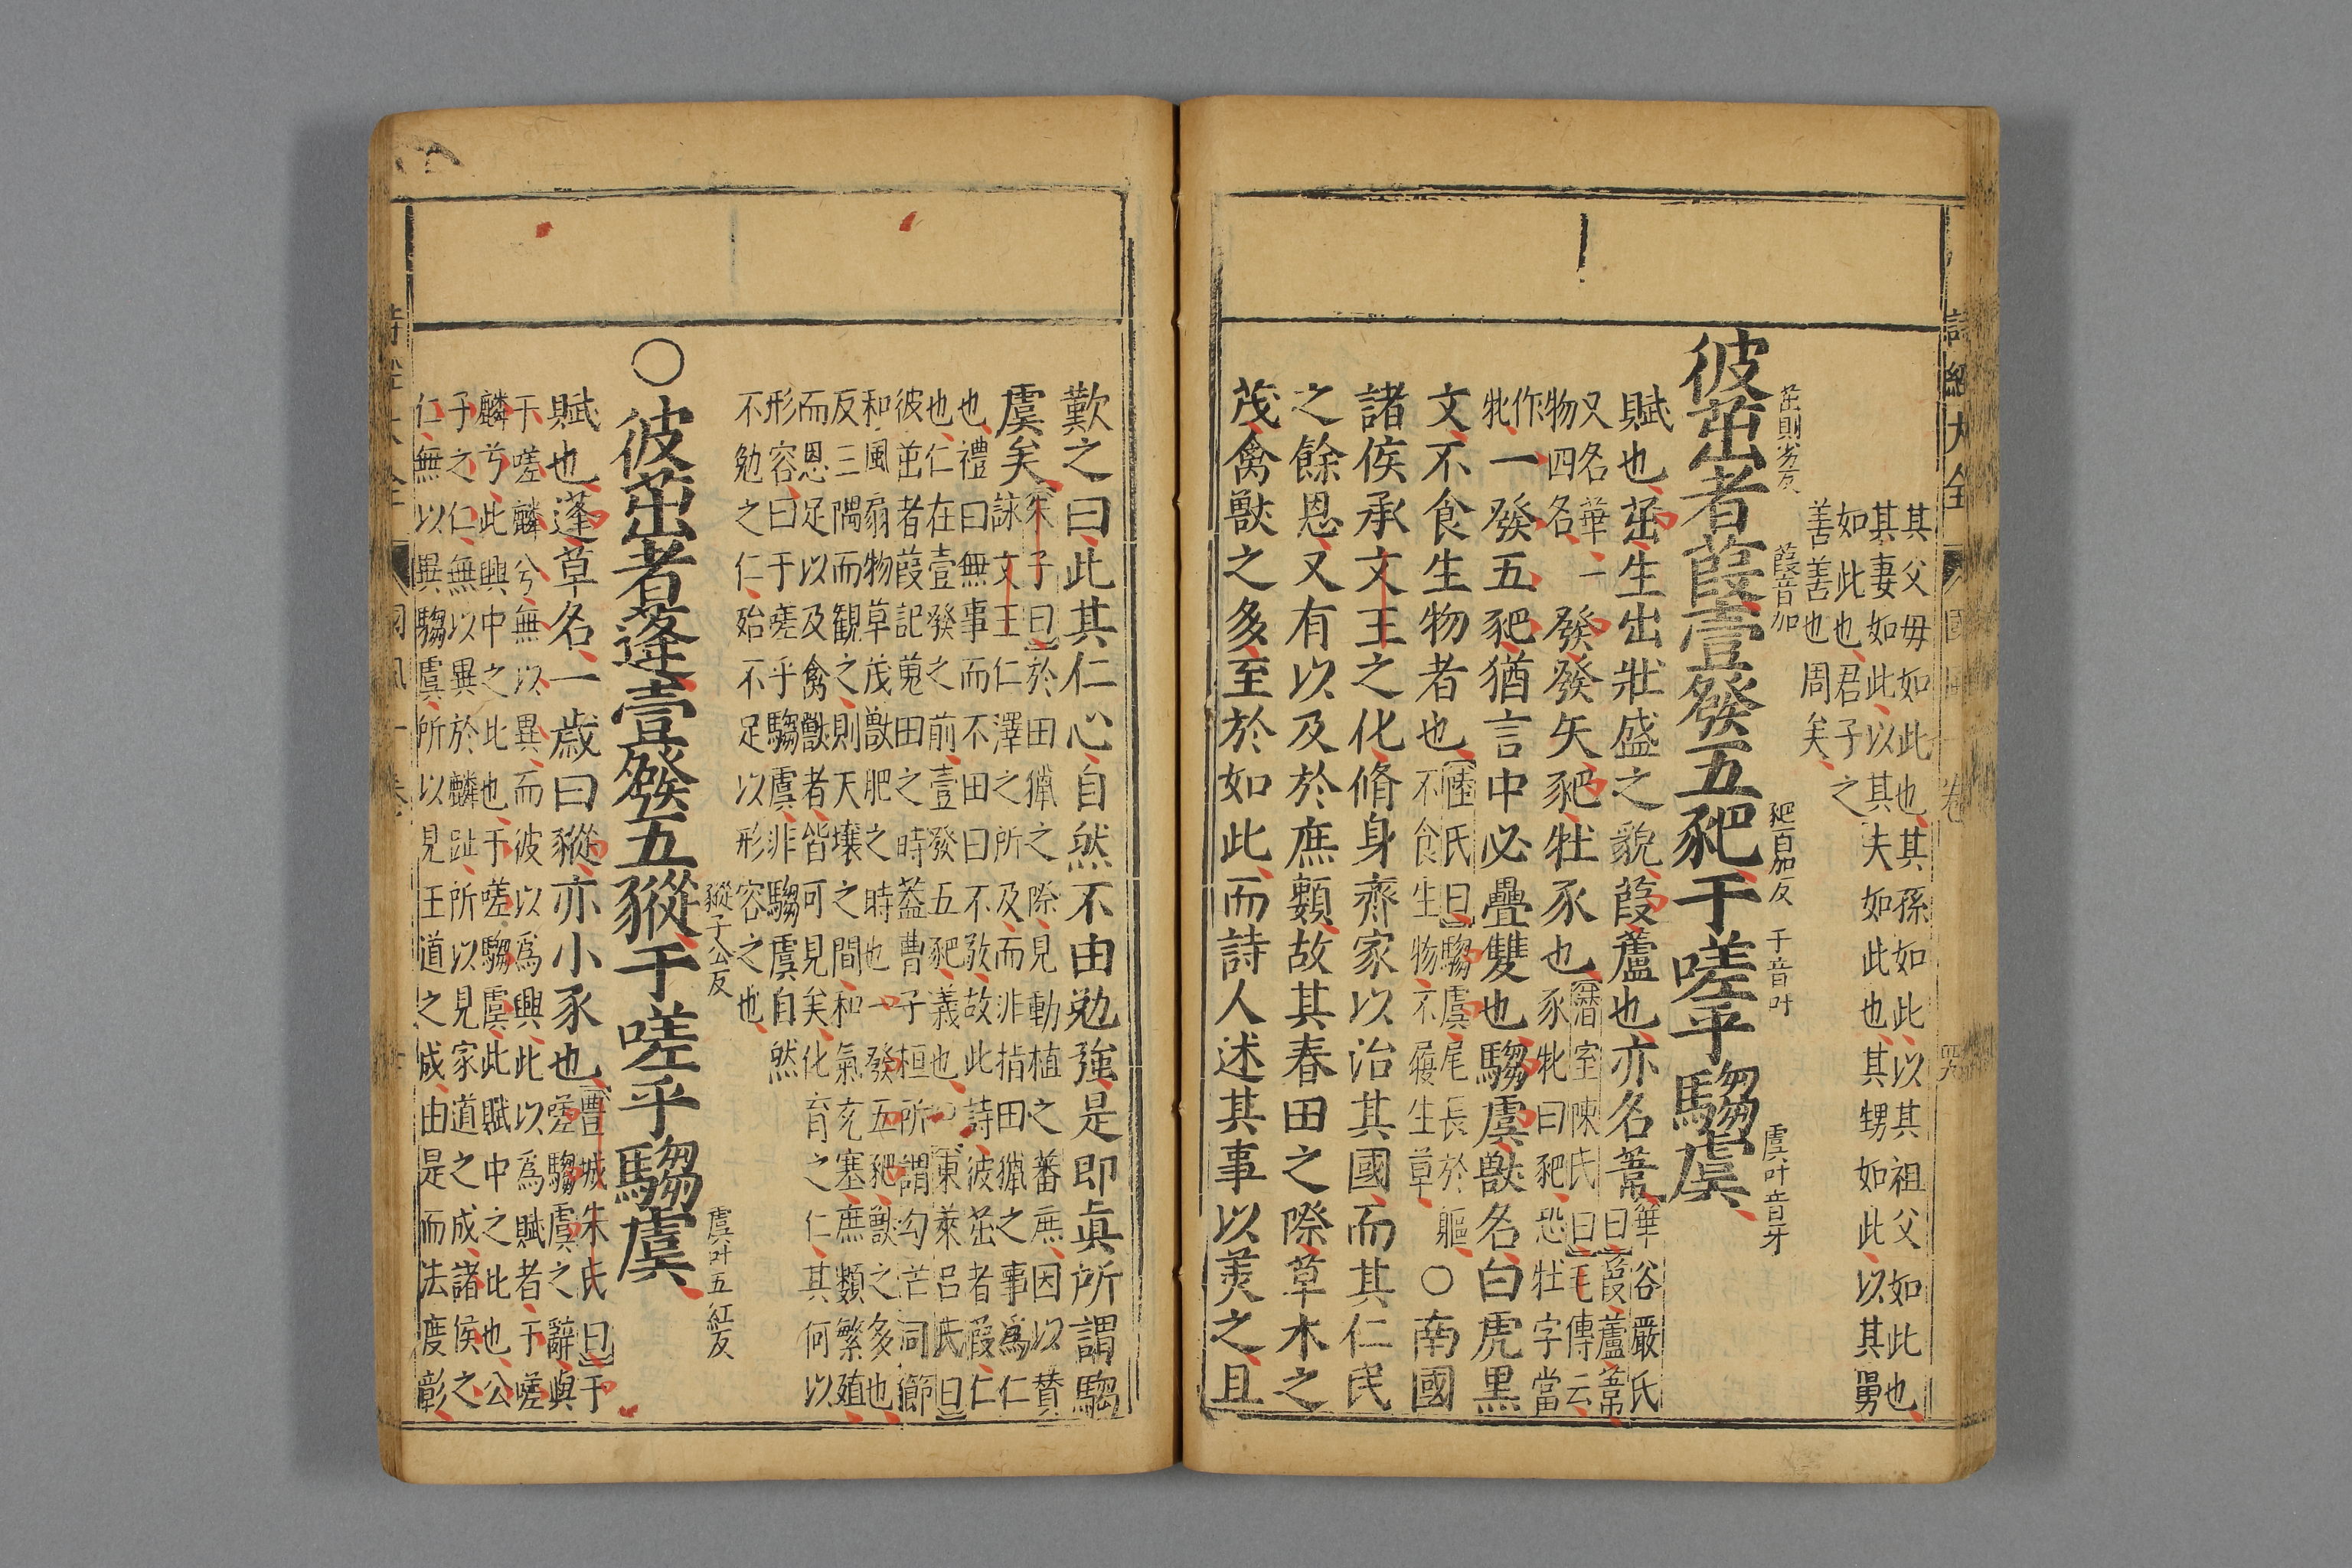 詩經大全
國風一卷
其父毋如此也其孫如此以其祖父如此也
其妻如此以其夫如此也其甥如此以其舅
如此也君子之
善善也周矣
茁則劣反
葭音加
豝百加反
于音吁
虞叶音牙
彼茁者葭壹發五豝于嗟乎騶虞
賦也茁生出壯盛之貌葭蘆也亦名葦
華谷嚴氏
曰葭蘆葦
又名華一
物四名
發發矢豝牡豕也
曆室陳氏曰毛傳云
豕牝曰豝恐牡字當
作
牝
一發五豝猶言中必疊雙也騶虞獸名白虎黑
文不食生物者也
陸氏曰騶虞尾長於軀
不食生物不履生草
○南國
諸侯承文王之化脩身齊家以治其國而其仁民
之餘恩又有以及於庶類故其春田之際草木之
茂禽獸之多至於如此而詩人述其事以美之且
歎之曰此其仁心自然不由勉強是即眞所謂騶
虞矣
朱子曰於田獵之際見動植之蕃庶因以賛
詠文王仁澤之所及而非指田獵之事爲仁
也禮曰無事而不田曰不敬故此詩彼茁者葭仁
也仁在壹發之前壹發五豝義也
東萊呂氏曰
彼茁者葭記蒐田之時蓋曹子桓所謂勾芒司節
和風扇物草茂獸肥之時也一發五豝獸之多也
反三隅而観之則天壤之間和氣充塞庶類繁殖
而恩足以及禽獸者皆可見矣化育之仁其何以
形容曰于嗟乎騶虞非騶虞自然
不勉之仁殆不足以形容之也
豵子公反
虞叶五紅反
○彼茁者蓬壹發五豵于嗟乎騶虞
賦也蓬草名一歲曰豵亦小豕也
曹城朱氏曰于
嗟騶虞之辭與
于嗟麟兮無以異而彼以爲興此以爲賦者于嗟
麟兮此興中之此也于嗟騶虞此賦中之比也公
子之仁無以異於麟趾所以見家道之成諸侯之
仁無以異騶虞所以見王道之成由是而法度彰